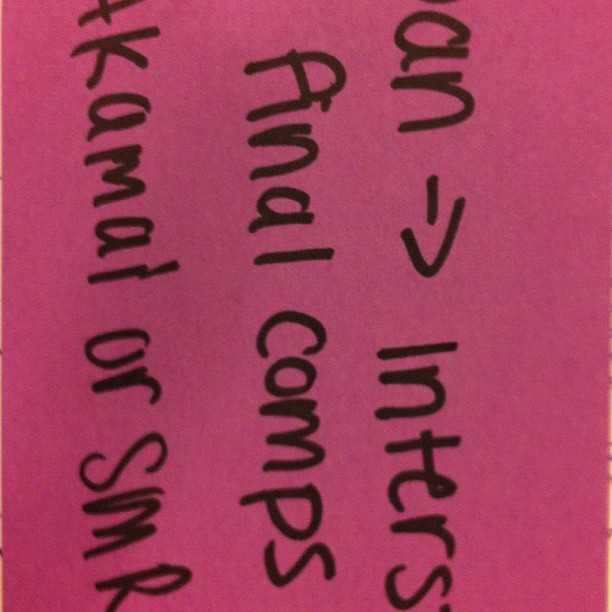 an → Inters
Final comps
Akamai or SMR